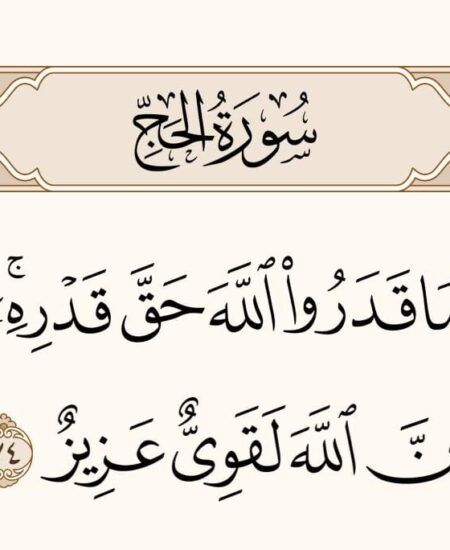 سُورَةُ الحَجِّ
مَا قَدَرُوا۟ ٱللَّهَ حَقَّ قَدْرِهِۦٓ ۚ
نَّ ٱللَّهَ لَقَوِىٌّ عَزِيزٌ ٧٤